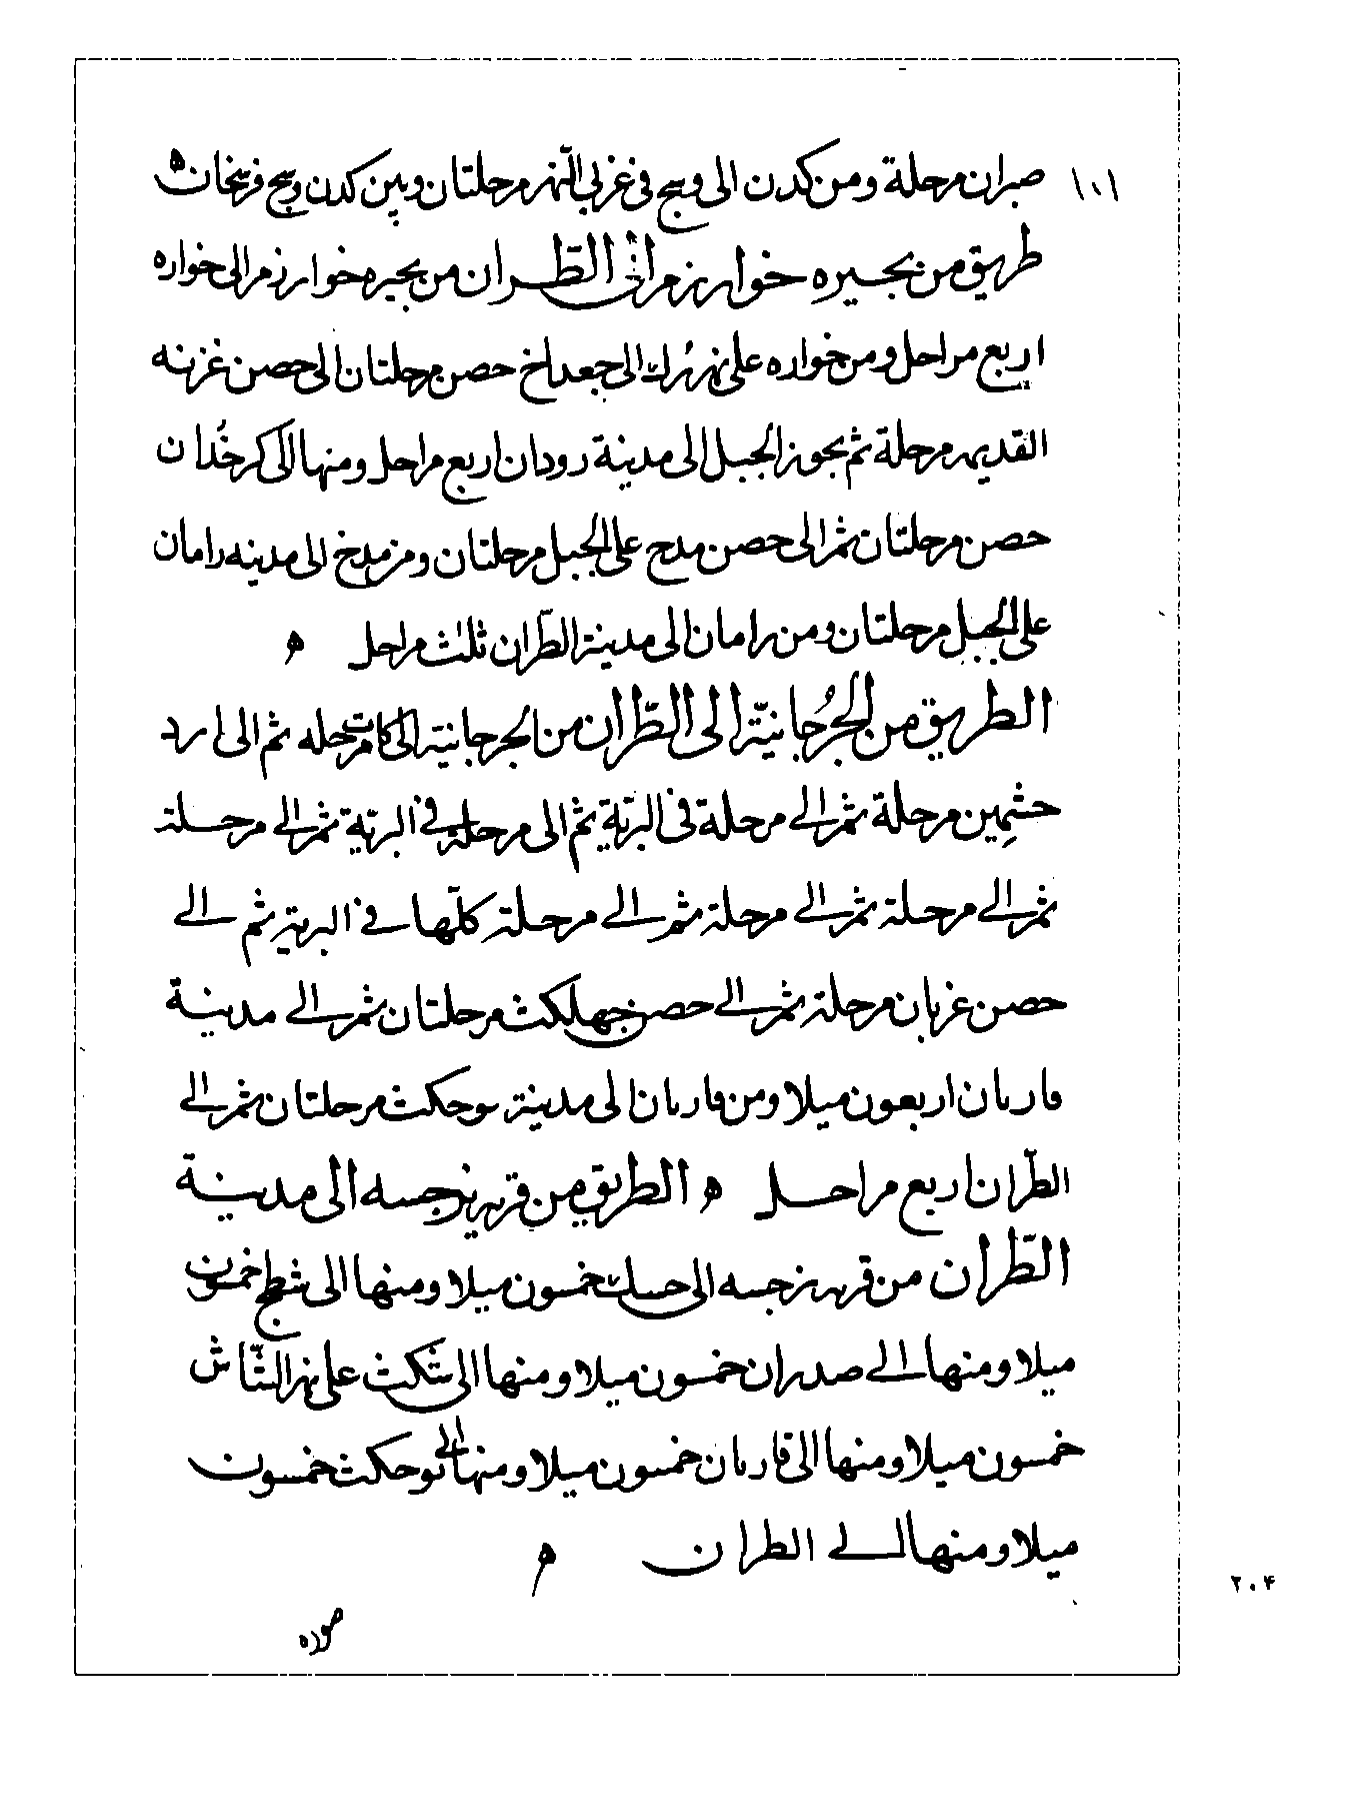 ١٠١
صبران مرحلة ومن كدن الى وسيج فى غربى النّهر مرحلتان وبين كدن وسيج فرسخان ه
طريق من بحيره خوارزم الى الطّران من بحيره خوارزم الى خواره
اربع مراحل ومن خواره على نهر برك الى جعداخ حصن مرحلتان الى حصن غزنه
القديم مرحلة ثم يجوز الجبل الى مدينة رودان اربع مراحل ومنها الى كرخدان
حصن مرحلتان ثم الى حصن مدح على الجبل مرحلتان ومن مدخ الى مدينه رامان
على الجبل مرحلتان ومن رامان الى مدينة الطّران ثلث مراحل ه
الطريق من الجُرجانيّة الى الطّران من الجرجانية الى كات مرحله ثم الى ارد
خشمين مرحلة ثم الى مرحلة فى البرّية ثم الى مرحلة فى البرّية ثم الى مرحلة
ثم الى مرحلة ثم الى مرحلة ثم الى مرحلة كلّها فى البرية ثم الى
حصن غربان مرحلة ثم الى حصن جهلكث مرحلتان ثم الى مدينة
فاربان اربعون ميلا ومن فاربان الى مدينة نوجكث مرحلتان ثم الى
الطّران اربع مراحل ه الطريق من قرية نرجسه الى مدينة
الطّران من قرية نرجسه الى خمسون ميلا ومنها الى شطح خمسون
ميلا ومنها الى صدران خمسون ميلا ومنها الى شكث على نهر الشّاش
خمسون ميلا ومنها الى فاربان خمسون ميلا ومنها الى نوجكث خمسون
ميلا ومنها الى الطران ه
صوره
٢٠۴